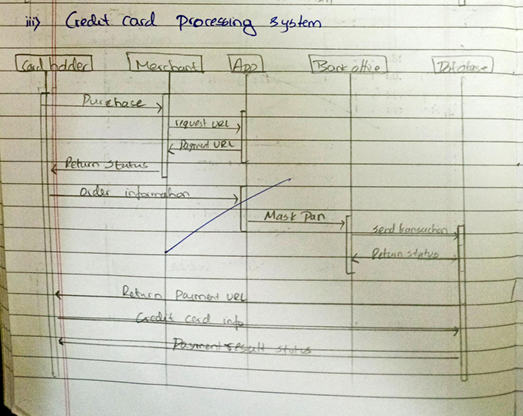 iii) Credit card processing system
Card holder Merchant App Back office Database
Purchase
request URL
Payment URL
Return status
Order information
Mask Pan
send transaction
Return status
Return Payment URL
Credit card info
Payment result status